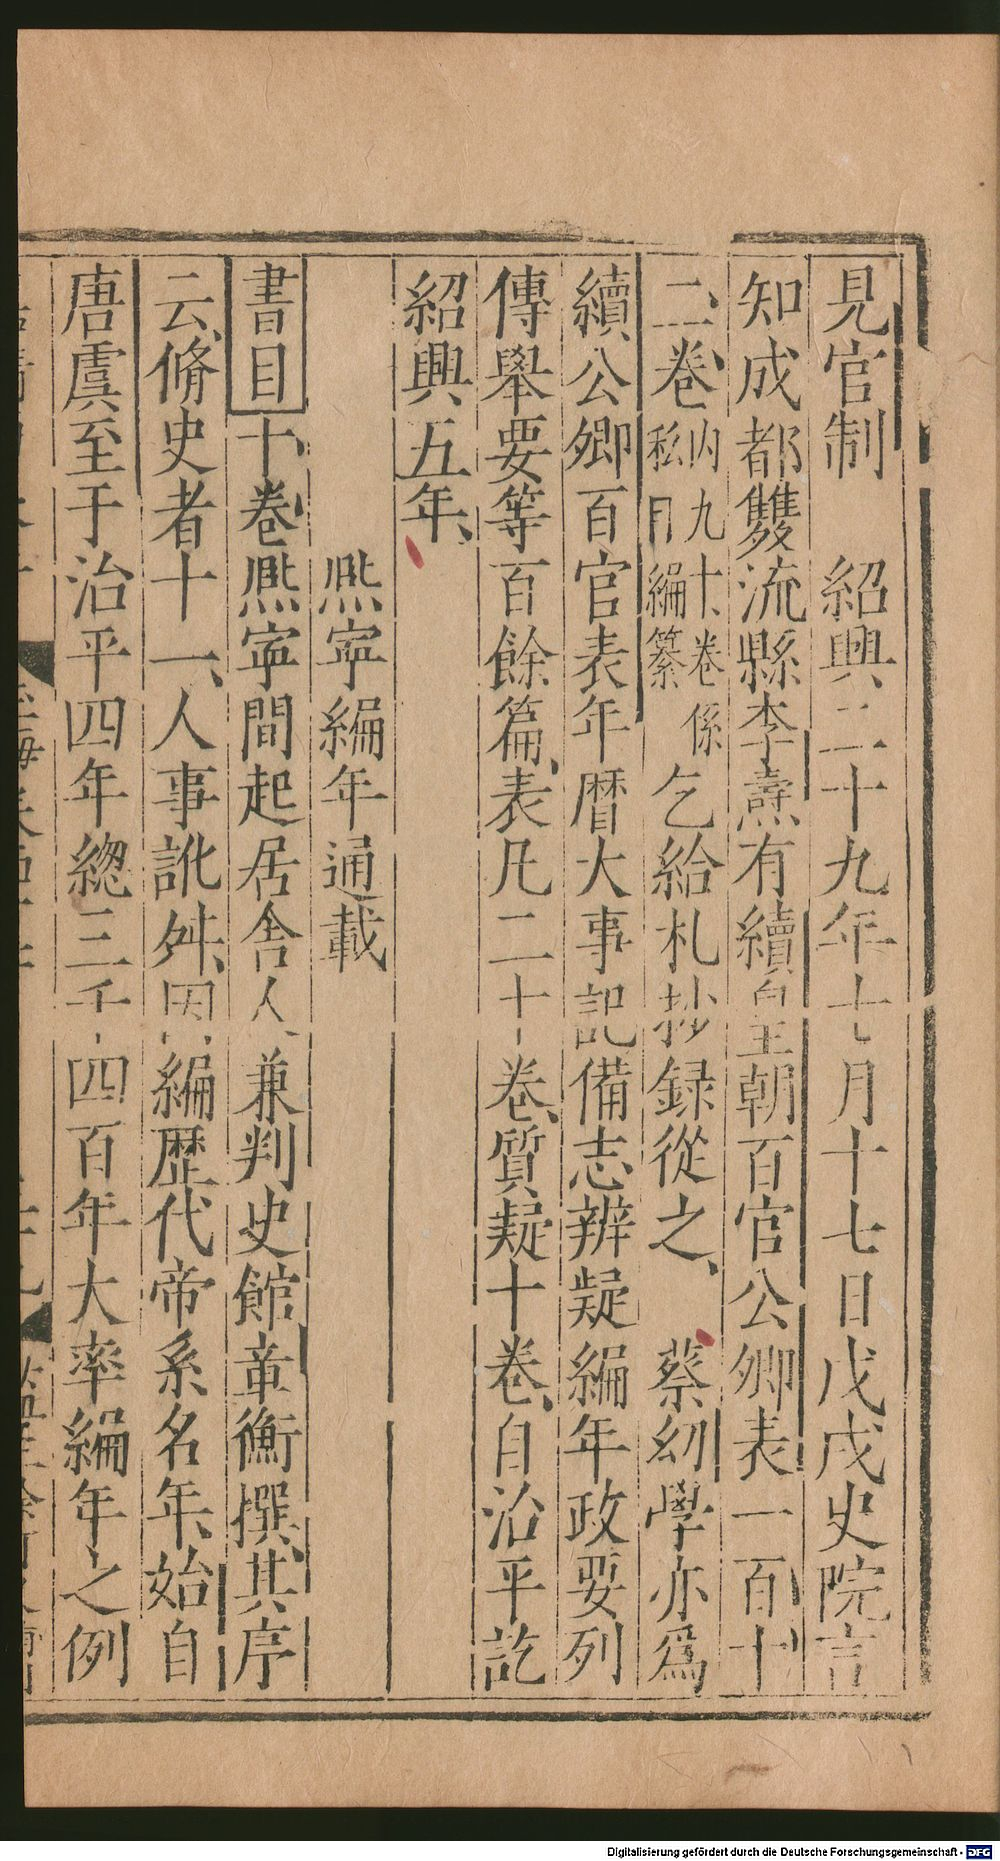 見官制　紹興二十九年七月十七日戊戌史院言
知成都雙流縣李燾有續皇朝百官公卿表一百十
二卷内九十卷係私自編纂乞給札抄録從之　蔡幼學亦爲
續公卿百官表年曆大事記備志辨疑編年政要列
傳舉要等百餘篇表凡二十卷質疑十卷自治平訖
紹興五年
熙寧編年通載
書目十卷熙寧間起居舍人兼判史館章衡撰其序
云脩史者十一人事訛舛因編歴代帝系名年始自
唐虞至于治平四年總三千四百年大率編年之例
Digitalisierung gefördert durch die Deutsche Forschungsgemeinschaft - DFG